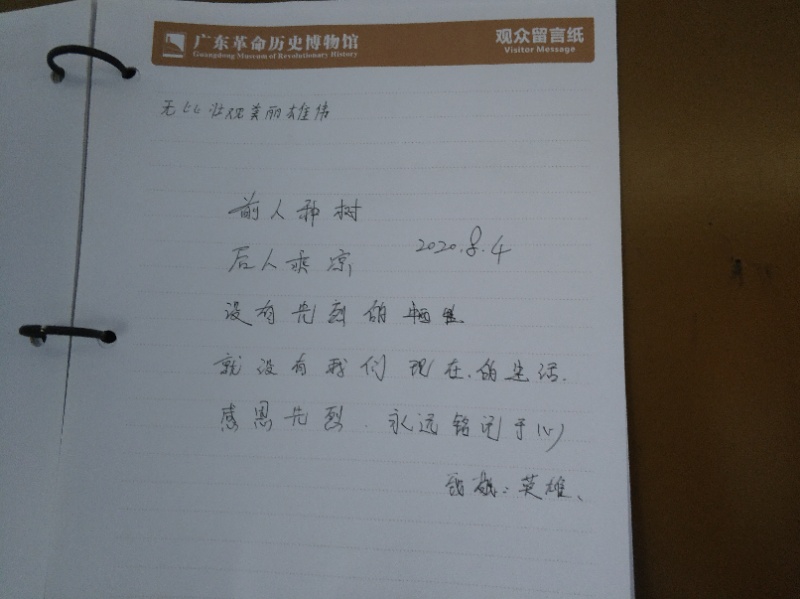 广东革命历史博物馆
Guangdong Museum of Revolutionary History
观众留言纸
Visitor Message
无比壮观美丽雄伟
前人种树
后人乘凉
2020.8.4
没有先烈的牺牲
就没有我们现在的生活.
感恩先烈.永远铭记于心
致敬:英雄、